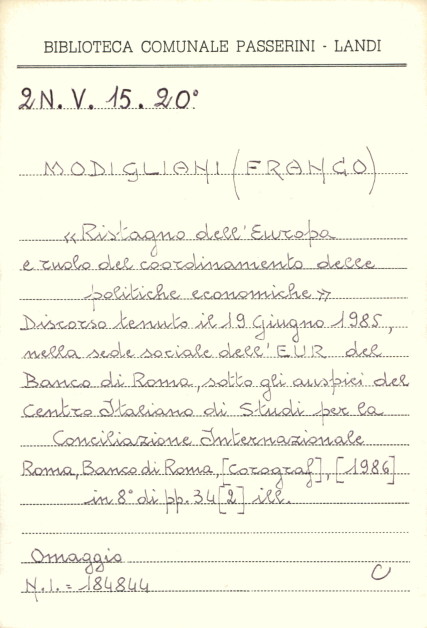 BIBLIOTECA COMUNALE PASSERINI - LANDI
2N. V. 15. 20°
MODIGLIANI (FRANCO)
«Ristagno dell'Europa
e ruolo del coordinamento delle
politiche economiche»
Discorso tenuto il 19 Giugno 1985,
nella sede sociale dell'EUR del
Banco di Roma, sotto gli auspici del
Centro Italiano di Studi per la
Conciliazione Internazionale
Roma, Banco di Roma, [Corograf], [1986]
in 8° di pp. 34 [2] ill.
Omaggio
N.I. = 184844
C